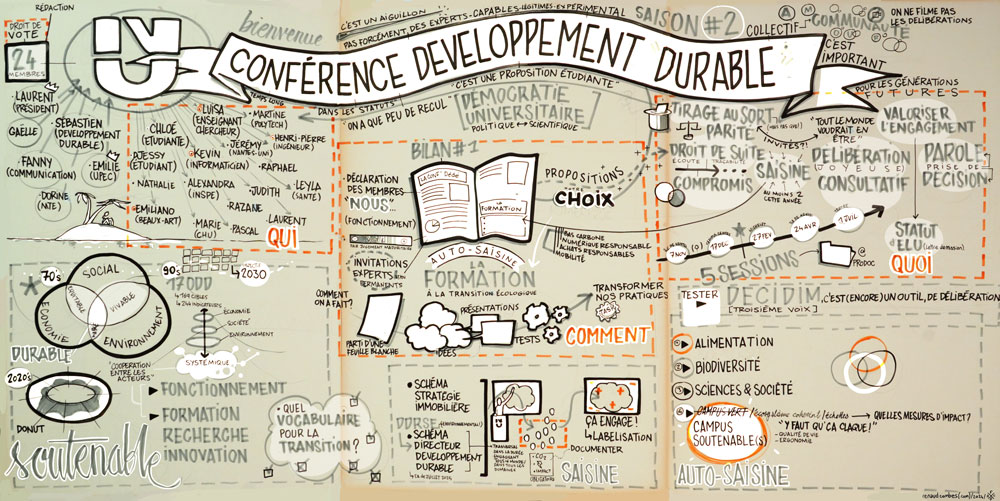 RÉDACTION
DROIT DE
VOTE
24
MEMBRES
NU
bienvenue
C'EST UN AIGUILLON!
PAS FORCÉMENT DES EXPERTS-CAPABLES-LÉGITIMES-EXPÉRIMENTAL
SAISON #2
COLLECTIF
COMMUNAUTÉ
C'EST
IMPORTANT
ON NE FILME PAS
LES DÉLIBÉRATIONS
CONFÉRENCE DEVELOPPEMENT DURABLE
POUR LES GÉNÉRATIONS
FUTURES
LAURENT
(PRÉSIDENT)
GAELLE
SÉBASTIEN
(DEVELOPPEMENT
DURABLE)
FANNY
(COMMUNICATION)
EMILIE
(UPEC)
DORINE
TEMPS LONG
CHLOÉ
(ETUDIANTE)
LUISA
(ENSEIGNANT
CHERCHEUR)
MARTINE
(POLYTECH)
HENRI-PIERRE
(INGÉNIEUR)
JÉRÉMY
(NANTES-UNI)
AJESSY
(ÉTUDIANT)
KEVIN
(INFORMATICIEN)
RAPHAËL
NATHALIE
ALEXANDRA
(INSPE)
JUDITH
LEYLA
(SANTÉ)
EMILIANO
(BEAUX-ART)
RAZANE
MARIE
(CHU)
PASCAL
LAURENT
QUI
DANS LES STATUTS
"C'EST UNE PROPOSITION ÉTUDIANTE"
ON A QUE PEU DE RECUL
DÉMOCRATIE
UNIVERSITAIRE
POLITIQUE ↔ SCIENTIFIQUE
BILAN #1
DÉCLARATION
DES MEMBRES
"NOUS"...
(FONCTIONNEMENT)
PAR JUGEMENT MAJORITAIRE
INVITATIONS
EXPERTS
PERMANENTS
LA FORMATION
PROPOSITIONS
CHOIX
BAS CARBONE
NUMÉRIQUE RESPONSABLE
ACHATS RESPONSABLES
MOBILITÉ
AUTO-SAISINE
LA
FORMATION
À LA TRANSITION ÉCOLOGIQUE
COMMENT
ON A FAIT?
PARTI D'UNE
FEUILLE BLANCHE
IDÉES
PRÉSENTATIONS
TESTS
TRANSFORMER
NOS PRATIQUES
COMMENT
TIRAGE AU SORT
PARITÉ
DROIT DE SUITE
ÉCOUTE
COMPROMIS
INVITÉS?!
SAISINE
AU MOINS 2
CETTE ANNÉE
"TOUT LE MONDE
VOUDRAIT EN
ÊTRE"
DÉLIBÉRATION
(JOYEUSE)
CONSULTATIF
VALORISER
L'ENGAGEMENT
PAROLE
PRISE DE
DÉCISION
STATUT
D'ÉLU
QUOI
7 NOV
17 DEC
27 FEV
24 AVR
17 JUIL
5 SESSIONS
@
PRODOC
70'S
SOCIAL
ÉQUITABLE
VIVABLE
ÉCONOMIE
ENVIRONNEMENT
DURABLE
"COOPÉRATION
ENTRE LES
ACTEURS"
2020'S
DONUT
soutenable
90'S
→ 2030
17 ODD
↳ 169 CIBLES
↳ 244 INDICATEURS
ÉCONOMIE
SOCIÉTÉ
ENVIRONNEMENT
SYSTÉMIQUE
FONCTIONNEMENT
FORMATION
RECHERCHE
INNOVATION
QUEL
VOCABULAIRE
POUR LA
TRANSITION?
SCHÉMA
STRATÉGIE
IMMOBILIÈRE
DDRSE
SCHÉMA
DIRECTEUR
DEVELOPPEMENT
DURABLE
DOCUMENTER
ÇA ENGAGE!
↳ LABELISATION
SAISINE
TESTER
DECIDIM
...C'EST (ENCORE) UN OUTIL, DE DÉLIBÉRATION
[TROISIÈME VOIX]
ALIMENTATION
BIODIVERSITÉ
SCIENCES & SOCIÉTÉ
CAMPUS VERT
CAMPUS
SOUTENABLE(S)
→ QUELLES MESURES D'IMPACT?
"Y FAUT QU'ÇA CLAQUE!"
- QUALITÉ DE VIE
- ERGONOMIE
AUTO-SAISINE